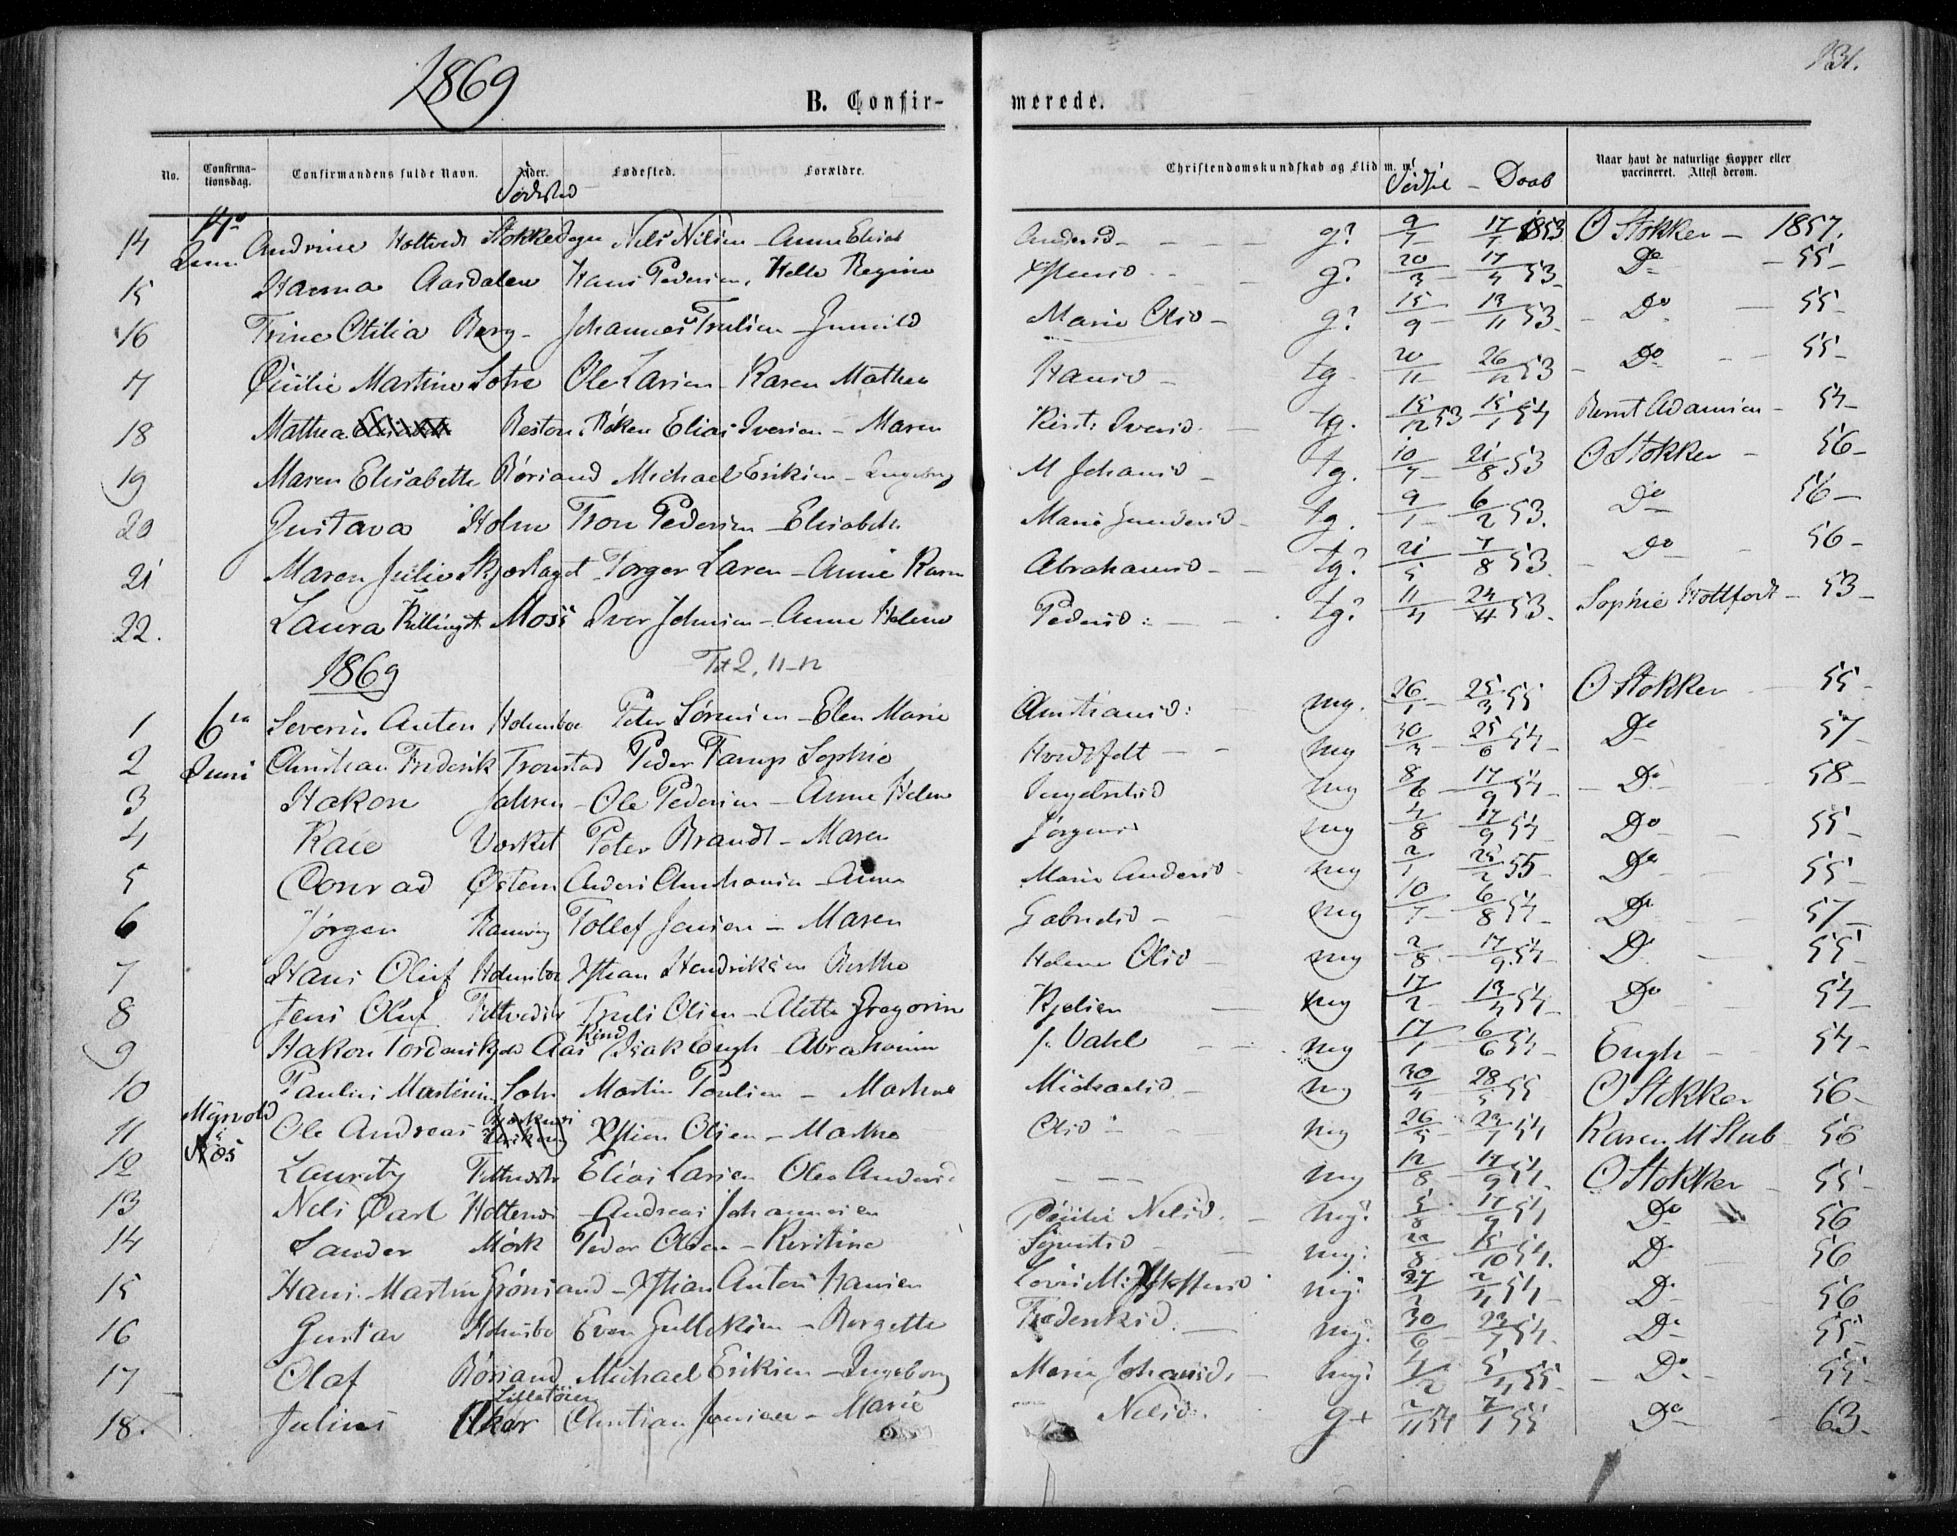 1869
131.
B. Confir- merede.
No. Confirma-tionsdag. Confirmandens fulde Navn. Alder. Fødested. Forældre. Christendomskundskab og Flid m. v. Naar havt de naturlige Kopper eller vaccineret. Attest derom.
Fødested Fødsel - Daab
14 Juni Andrine Holtvedt Stokke Nels Nilsen - Anne Elias Andersd - g? 9/7 17/7 1853 O Stokker - 1857.
15 Hanna Aasdalen Hans Pedersen, Helle Regine g? 20/3 17/4 53 Do - 55 -
16 Trine Otilia Berg - Johannes Trulsen - Gunild Marie Olsd - g? 15/9 13/11 53 - Do - 55 -
17 Cicilie Martine Sohr Ole Larsen - Karen Mathea Hansd - tg - 20/11 26/12 53 - Do - 55 -
18 Mathea Reston, Røken Elias Iversen - Maren Kirst: Iversd. tg. 15/12 53 15/1 54 Bernt Adamsen - 54 -
19 Maren Elisabeth Rørsand Michael Eriksen - Ingeborg M Johansd - tg. 10/7 21/8 53 O Stokker - 56 -
20 Gustava Holm Tron Pedersen - Elisabeth Marie Gundersd - tg. 9/1 6/2 53. Do - 56 -
21 Maren Julie Skjærhaget Torger Larsen - Anne Karen Abrahamsd - tg? 21/5 7/8 53. Do - 56 -
22. Laura Killingst Moss Iver Johnsen - Anne Helene Pedersd: tg? 11/4 24/4 53. Sophie Holtfodt - 53 -
1869 Tt 2, 11-12
1 6te Severin Anten Holmsbo Peter Sørensen - Elen Marie Christiansd: mg. 26/1 25/3 55 O Stokker - 55 -
2 Juni Christian Frederik Tronstad Peder Famp Sophie Hordsfelt - mg 30/3 25/6 54 - Do 57 -
3 Hakon Jahren - Ole Pedersen - Anne Helene Ingebretsd mg 8/6 17/9 54 - Do - 58 -
4 Kaie Værket Peter Brandt - Maren Jørgens mg 4/8 17/9 54 - Do - 55 -
5 Conrad Østern Anders Christiansen - Anne Marie Andersd - mg 2/1 25/2 55 - Do - 55 -
6 Jørgen Ramvig Tollef Jensen - Maren Gabrielsd - mg 10/7 6/8 54 - Do 57 -
7 Hans Oluf Holmsbo Xstian Hendriksen Berthe Helene Olsd - mg 2/8 17/9 54 - Do - 55 -
8 Jens Oluf Tofteholm Truls Olsen - Alette Gregorine Kjelsen - mg 17/2 13/4 54 - Do 54 -
9 Hakon Tordenskjold Aas Isak Engh - Abrahamine f. Dahl - mg 17/1 6/6 54 - Engh - 54 -
10 Paulus Martinius Sohr Martin Paulsen - Marthe Michaelsd - mg 30/4 28/5 55 O Stokker 56 -
11 Myrvold i Næs Ole Andreas Xstian Olsen - Marthe Olsd - mg 26/5 23/7 54 Karen M Stub 56
12 Lauritz Elias Larsen Olea Andersd - mg 12/8 17/9 54. O Stokker - 55 -
13 Nels Carl Holtenes - Andreas Johannesen Cicilie Nelsd. - mg? 5/8 17/9 54 Do - 56
14 Sander Mørk Peder Olsen - Kirstine Sivertsd - mg: 22/8 15/10 54. Do 56
15 Hans Martin Grønsand - Xstian Anton Hansen Lovise M mg: 54 - Do - 56
16 Gustav Holmsbo Even Gulleksen - Borgette Frederiksd. - mg: 30/6 23/7 54. Do - 55 -
17 Olaf Rørsand Michael Eriksen - Ingeborg Marie Johansd. mg: 55 - Do - 55 -
18. Julius Lilletøien Christian Jensen - Marie Nelsd. g+ 2/11 54 7/1 55 Do - 63 -